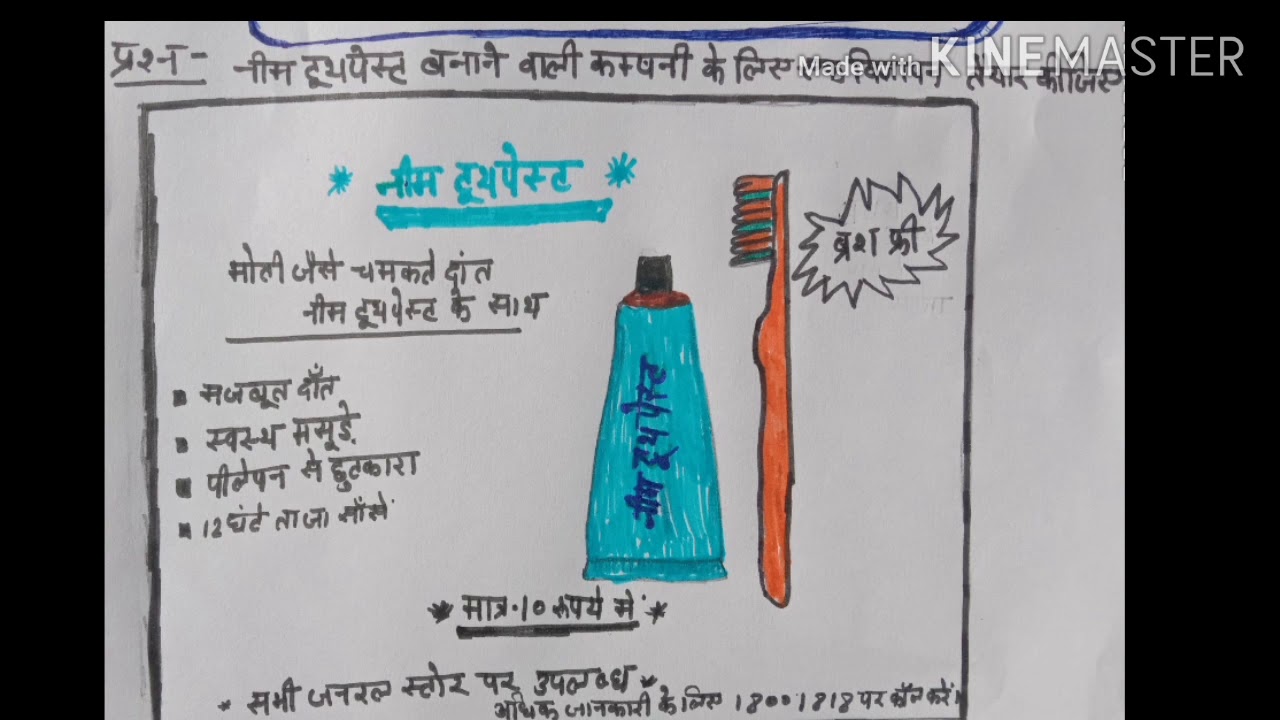 प्रश्न - नीम टूथपेस्ट बनाने वाली कम्पनी के लिए तैयार कीजिए
Made with KINEMASTER
* नीम टूथपेस्ट *
ब्रश फ्री
मोती जैसे चमकते दांत
नीम टूथपेस्ट के साथ
मजबूत दाँत
स्वस्थ मसूड़े
पीलेपन से छुटकारा
12 घंटे ताजा साँसें
नीम टूथ पेस्ट
* मात्र 10 रूपये में *
* सभी जनरल स्टोर पर उपलब्ध *
अधिक जानकारी के लिए 18001818 पर कॉल करें।